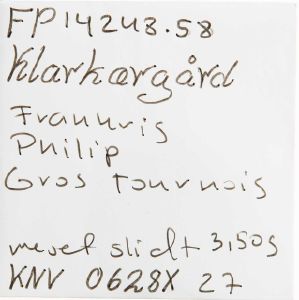 FP14243.58
Klarkærgård
Frankris
Philip
Gros Tournois
meget slidt 3,50g
KNV 0628X 27